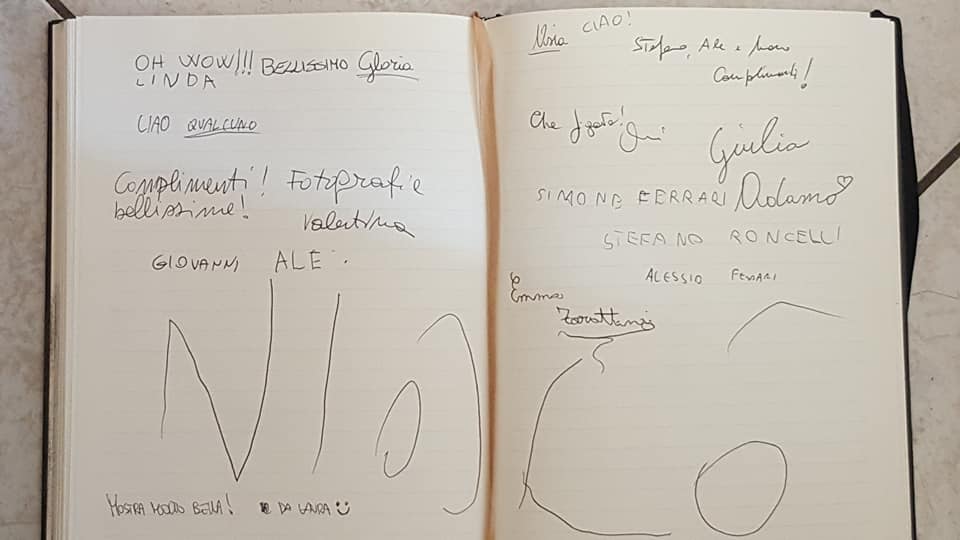 OH WOW!!! BELLISSIMO Gloria
LINDA
CIAO QUALCUNO
Complimenti! Fotografie
bellissime! Valentina
GIOVANNI ALE
MOSTRA MOLTO BELLA! DA LAURA
CIAO!
Stefano, Ale e
Complimenti!
Che figata!
Giulia
SIMONE FERRARI Adamo
STEFANO RONCELLI
ALESSIO FERRARI
Emma